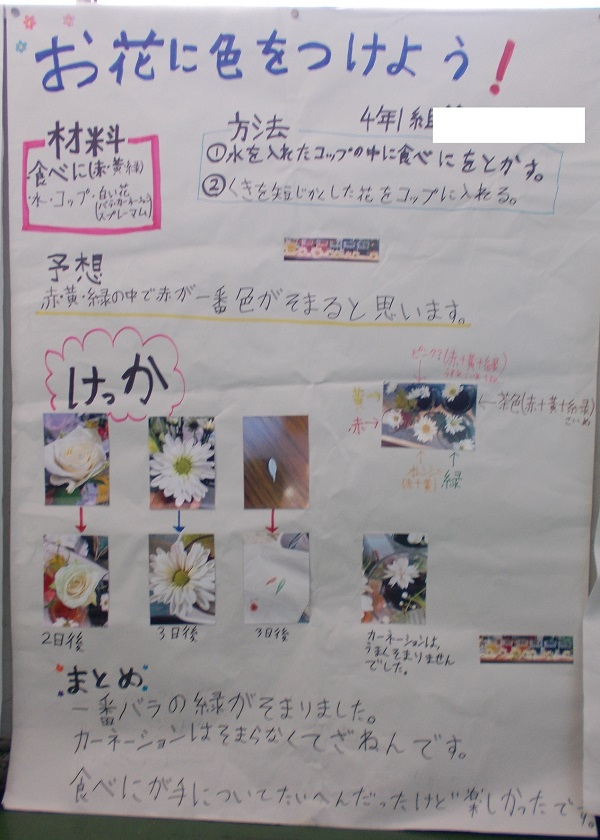 お花に色をつけよう！
4年1組
材料
食べに(赤・黄・緑)
・水・コップ・白い花
(バラ・カーネーション
スプレーマム)
方法
①水を入れたコップの中に食べにをとかす。
②くきを短じかくした花をコップに入れる。
予想
赤・黄・緑の中で赤が一番色がそまると思います。
けっか
ピンク(赤+黄+緑)
黄→
赤→
←茶色(赤+黄+緑)
オレンジ
(赤+黄)
緑
2日後
3日後
3日後
カーネーションは、
うまくそまりません
でした。
まとめ
一番バラの緑がそまりました。
カーネーションはそまらなくてざねんです。
食べにが手についてたいへんだったけど楽しかったです。